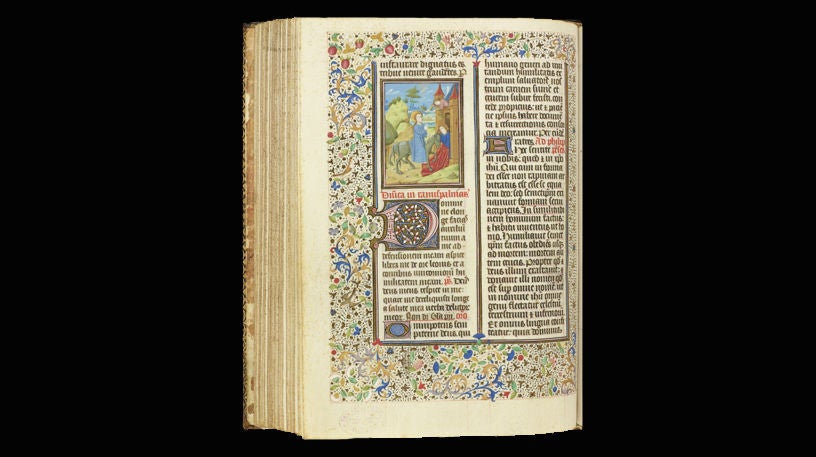 instaurare dignatus es
tribue venire gaudētes. P
Dn̄ica in ramispalmar̄
Domine
ne elon
ge facias
auxiliū
tuum a
me ad
defensionem meam aspice
libera me de ore leonis et a
cornibus unicorniorū hu
militatem meam. ps. Deus
deus meus respice in me:
quare me dereliquisti longe
a salute mea verba delictor̄
meor̄. Non di Gla pri. oro
Omnipotens sem
piterne deus, qui
humano generi ad imi
tandum humilitatis ex
emplum salvatorē nost
rum carnem sumē et
crucem subire fecisti. con
cede propicius: ut &
ipsius habere documē
ta & resurrectionis consor
cia mereamur. Per eūdē
Fratres. Ad philip
Hoc sentite
in vobis. quod & in xp̄o
ihū. Qui cum in forma
dei esset non rapinam ar
bitratus est esse se equa
lem deo: sed semetipm̄ ex
inanivit formam servi
accipiens. In similitudi
nem hominum factus:
& habitu inventus ut ho
mo. Humiliavit semet
ipm̄ factus obediēs usq̄
ad mortem: mortem au
tem crucis. Propter qd̄ &
deus illum exaltavit: &
donavit illi nomen qd̄
est sup̄ omne nomen ut
in nomine ihū omne
genu flectatur celestiū
terrestrium & infernorū.
Et omnis lingua confi
teatur: quia dominus.